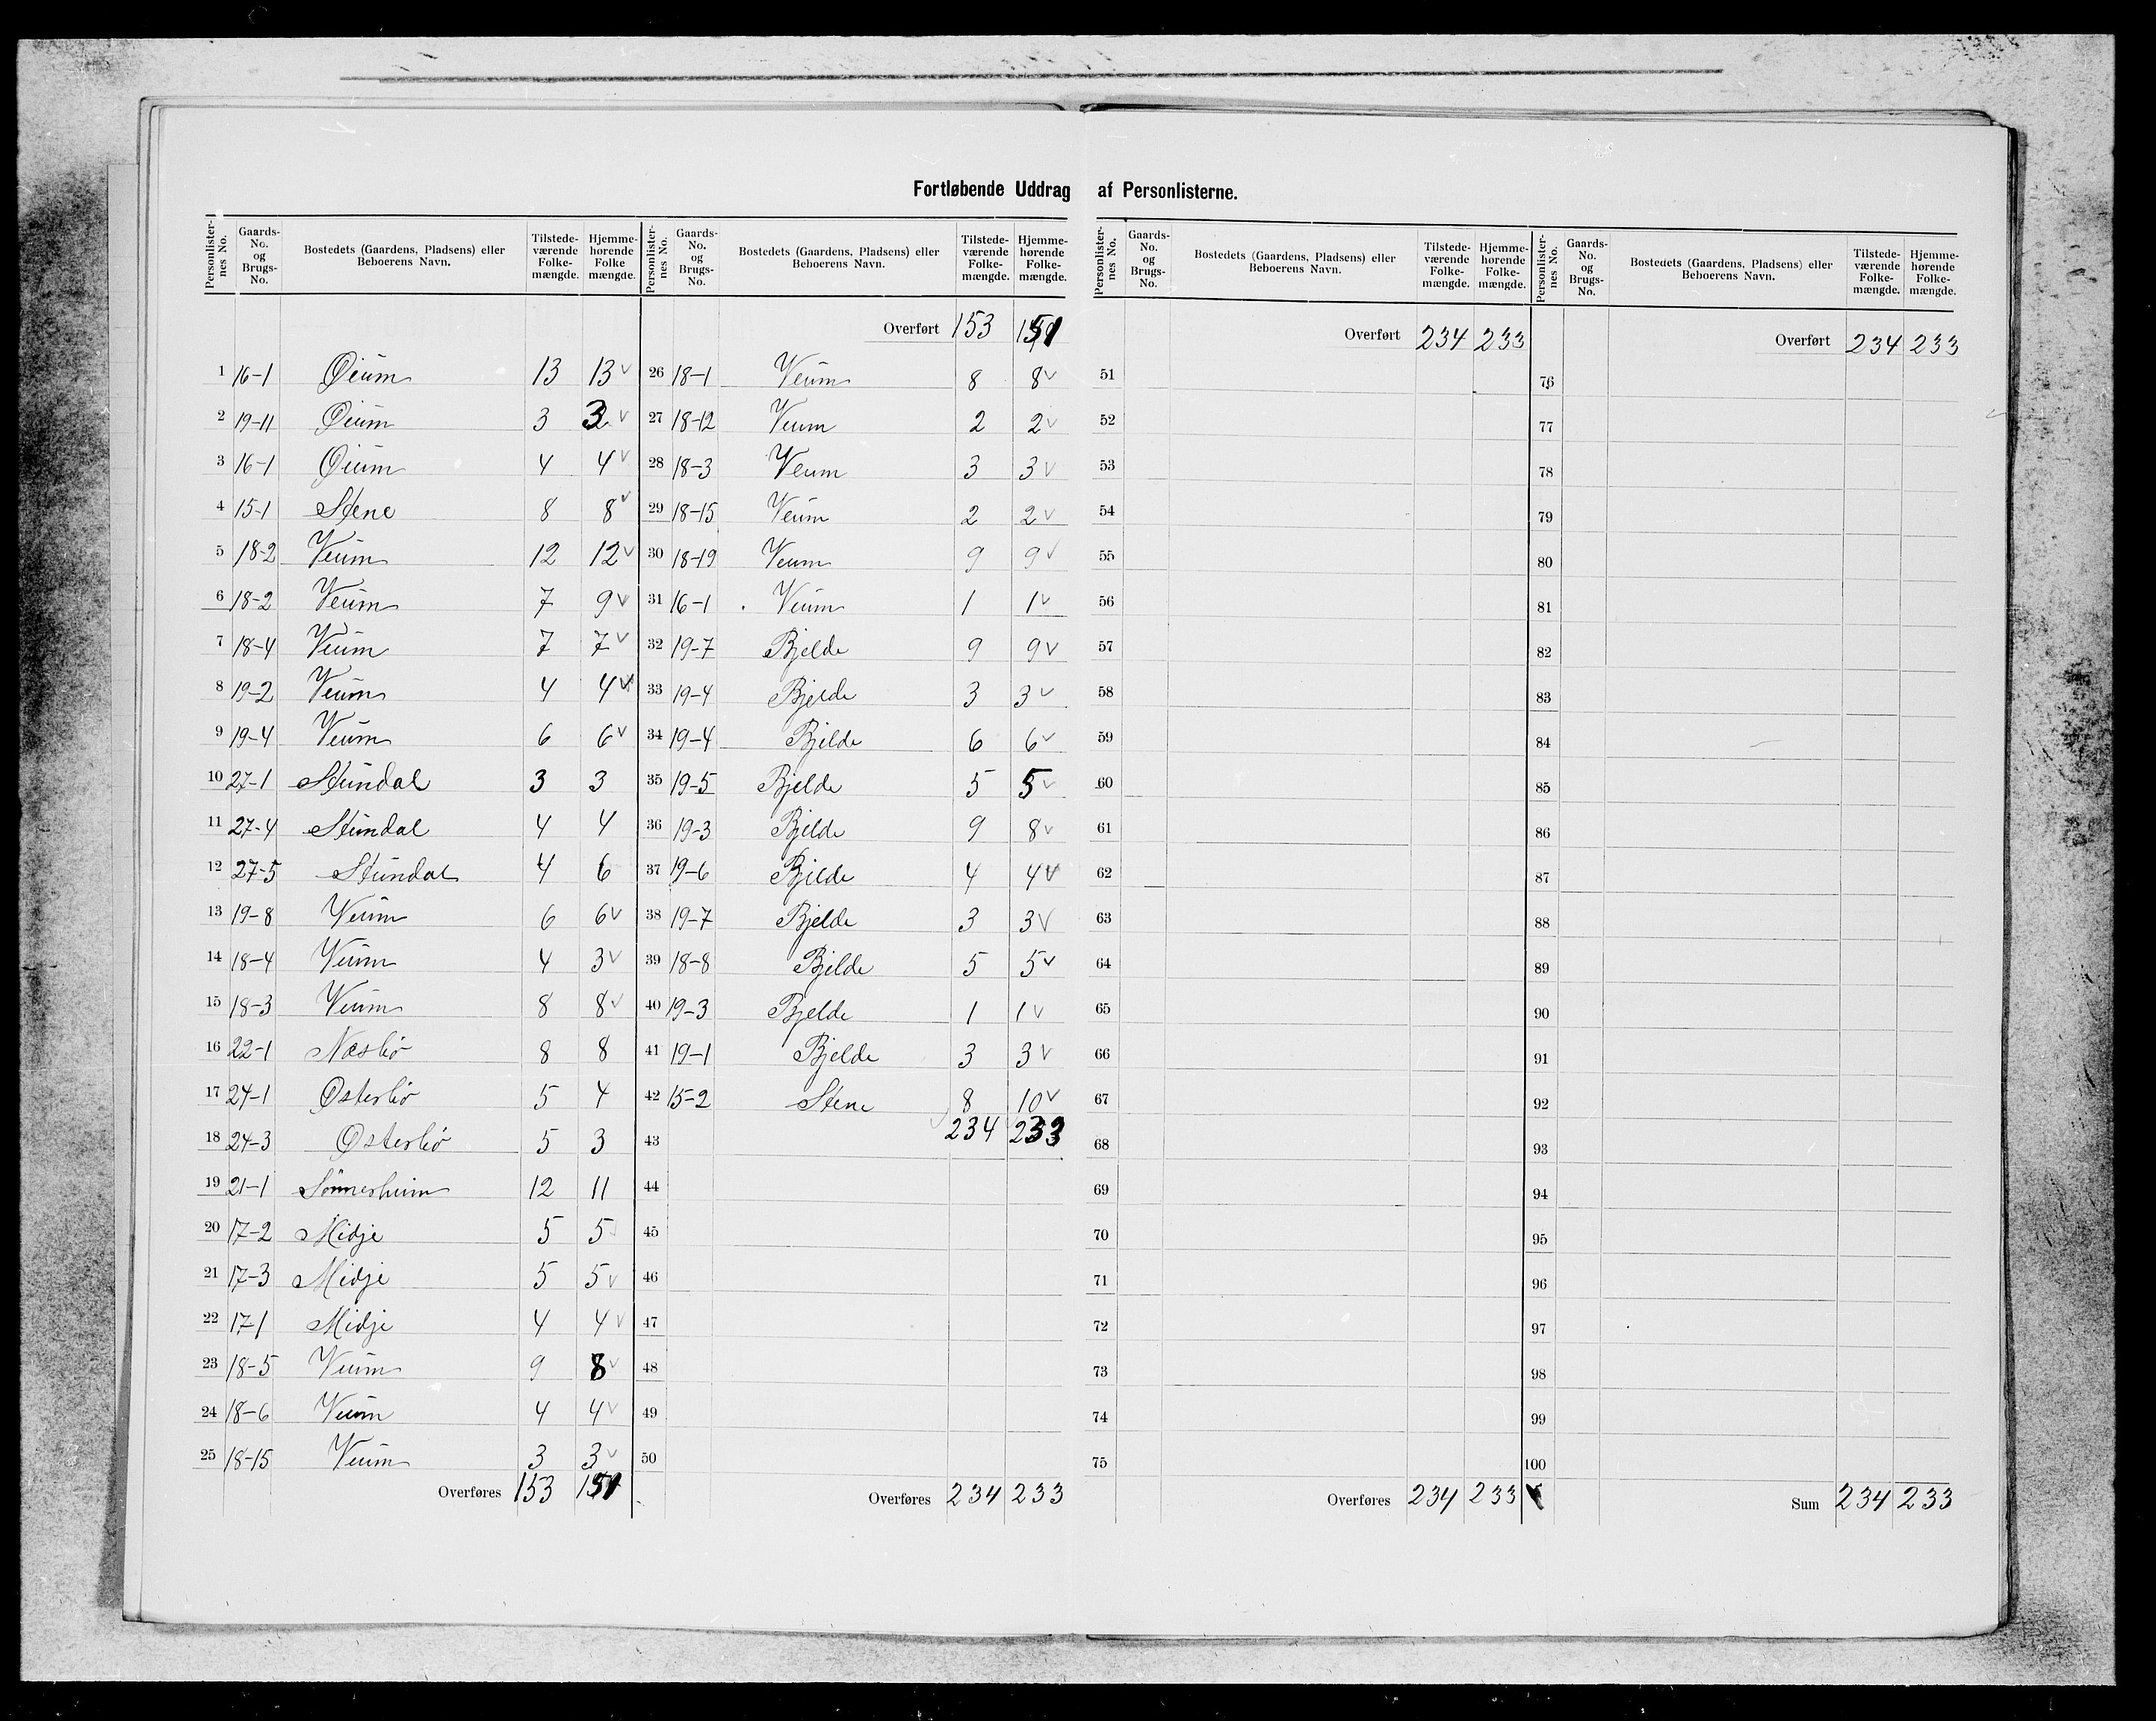 Fortløbende Uddrag af Personlisterne.
Personlister-nes No. Gaards-No. og Brugs-No. Bostedets (Gaardens, Pladsens) eller Beboerens Navn. Tilstede-værende Folke-mængde. Hjemme-hørende Folke mængde.
1 16-1 Øium 13 13 v
2 19-11 Øium 3 3 v
3 16-1 Øium 4 4 v
4 15-1 Stene 8 8 v
5 18-2 Veum 12 12 v
6 18-2 Veum 7 9 v
7 18-4 Veum 7 7 v
8 19-2 Veum 4 4 v
9 19-4 Veum 6 6 v
10 27-1 Stundal 3 3
11 27-4 Stundal 4 4
12 27-5 Stundal 4 6
13 19-8 Veum 6 6 v
14 18-4 Veum 4 3 v
15 18-3 Veum 8 8 v
16 22-1 Næsbø 8 8
17 24-1 Østerbø 5 4
18 24-3 Østerbø 5 3
19 21-1 Sønnerheim 12 11
20 17-2 Midje 5 5
21 17-3 Midje 5 5 v
22 17-1 Midje 4 4 v
23 18-5 Veum 9 8 v
24 18-6 Veum 4 4 v
25 18-15 Veum 3 3 v
Overføres 153 151
Personlister-nes No. Gaards-No. og Brugs-No. Bostedets (Gaardens, Pladsens) eller Beboerens Navn. Tilstede-værende Folke-mængde. Hjemme-hørende Folke-mængde.
Overført 153 151
26 18-1 Veum 8 8 v
27 18-12 Veum 2 2 v
28 18-3 Veum 3 3 v
29 18-15 Veum 2 2 v
30 18-19 Veum 9 9 v
31 16-1 Veum 1 1 v
32 19-7 Bjelde 9 9 v
33 19-4 Bjelde 3 3 v
34 19-4 Bjelde 6 6 v
35 19-5 Bjelde 5 5 v
36 19-3 Bjelde 9 8 v
37 19-6 Bjelde 4 4 v
38 19-7 Bjelde 3 3 v
39 18-8 Bjelde 5 5 v
40 19-3 Bjelde 1 1 v
41 19-1 Bjelde 3 3 v
42 15-2 Stene 8 10 v
43 234 233
44
45
46
47
48
49
50
Overføres 234 233
Personlister-nes No. Gaards-No. og Brugs-No. Bostedets (Gaardens, Pladsens) eller Beboerens Navn. Tilstede-værende Folke-mængde. Hjemme-hørende Folke-mængde.
Overført 234 233
51
52
53
54
55
56
57
58
59
60
61
62
63
64
65
66
67
68
69
70
71
72
73
74
75
Overføres 234 233
Personlister-nes No. Gaards-No. og Brugs-No. Bostedets (Gaardens, Pladsens) eller Beboerens Navn. Tilstede-værende Folke-mængde. Hjemme-hørende Folke-mængde.
Overført 234 233
76
77
78
79
80
81
82
83
84
85
86
87
88
89
90
91
92
93
94
95
96
97
98
99
100
Sum 234 233